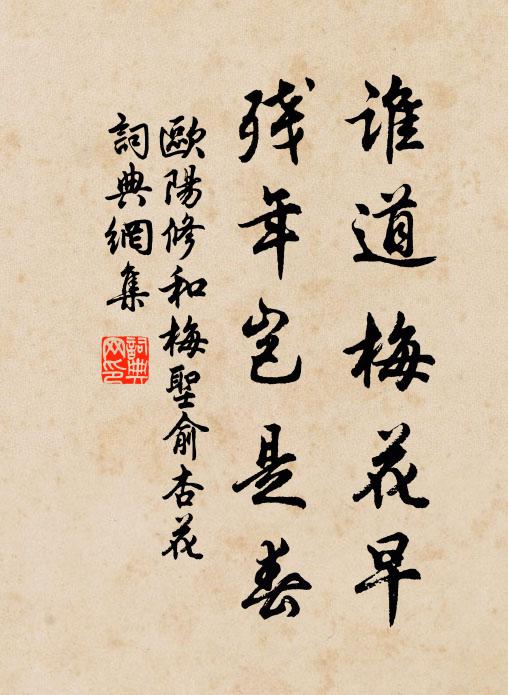 谁道梅花早
残年岂是春
歐陽修和梅聖俞杏花
詞典網集
詞典网印